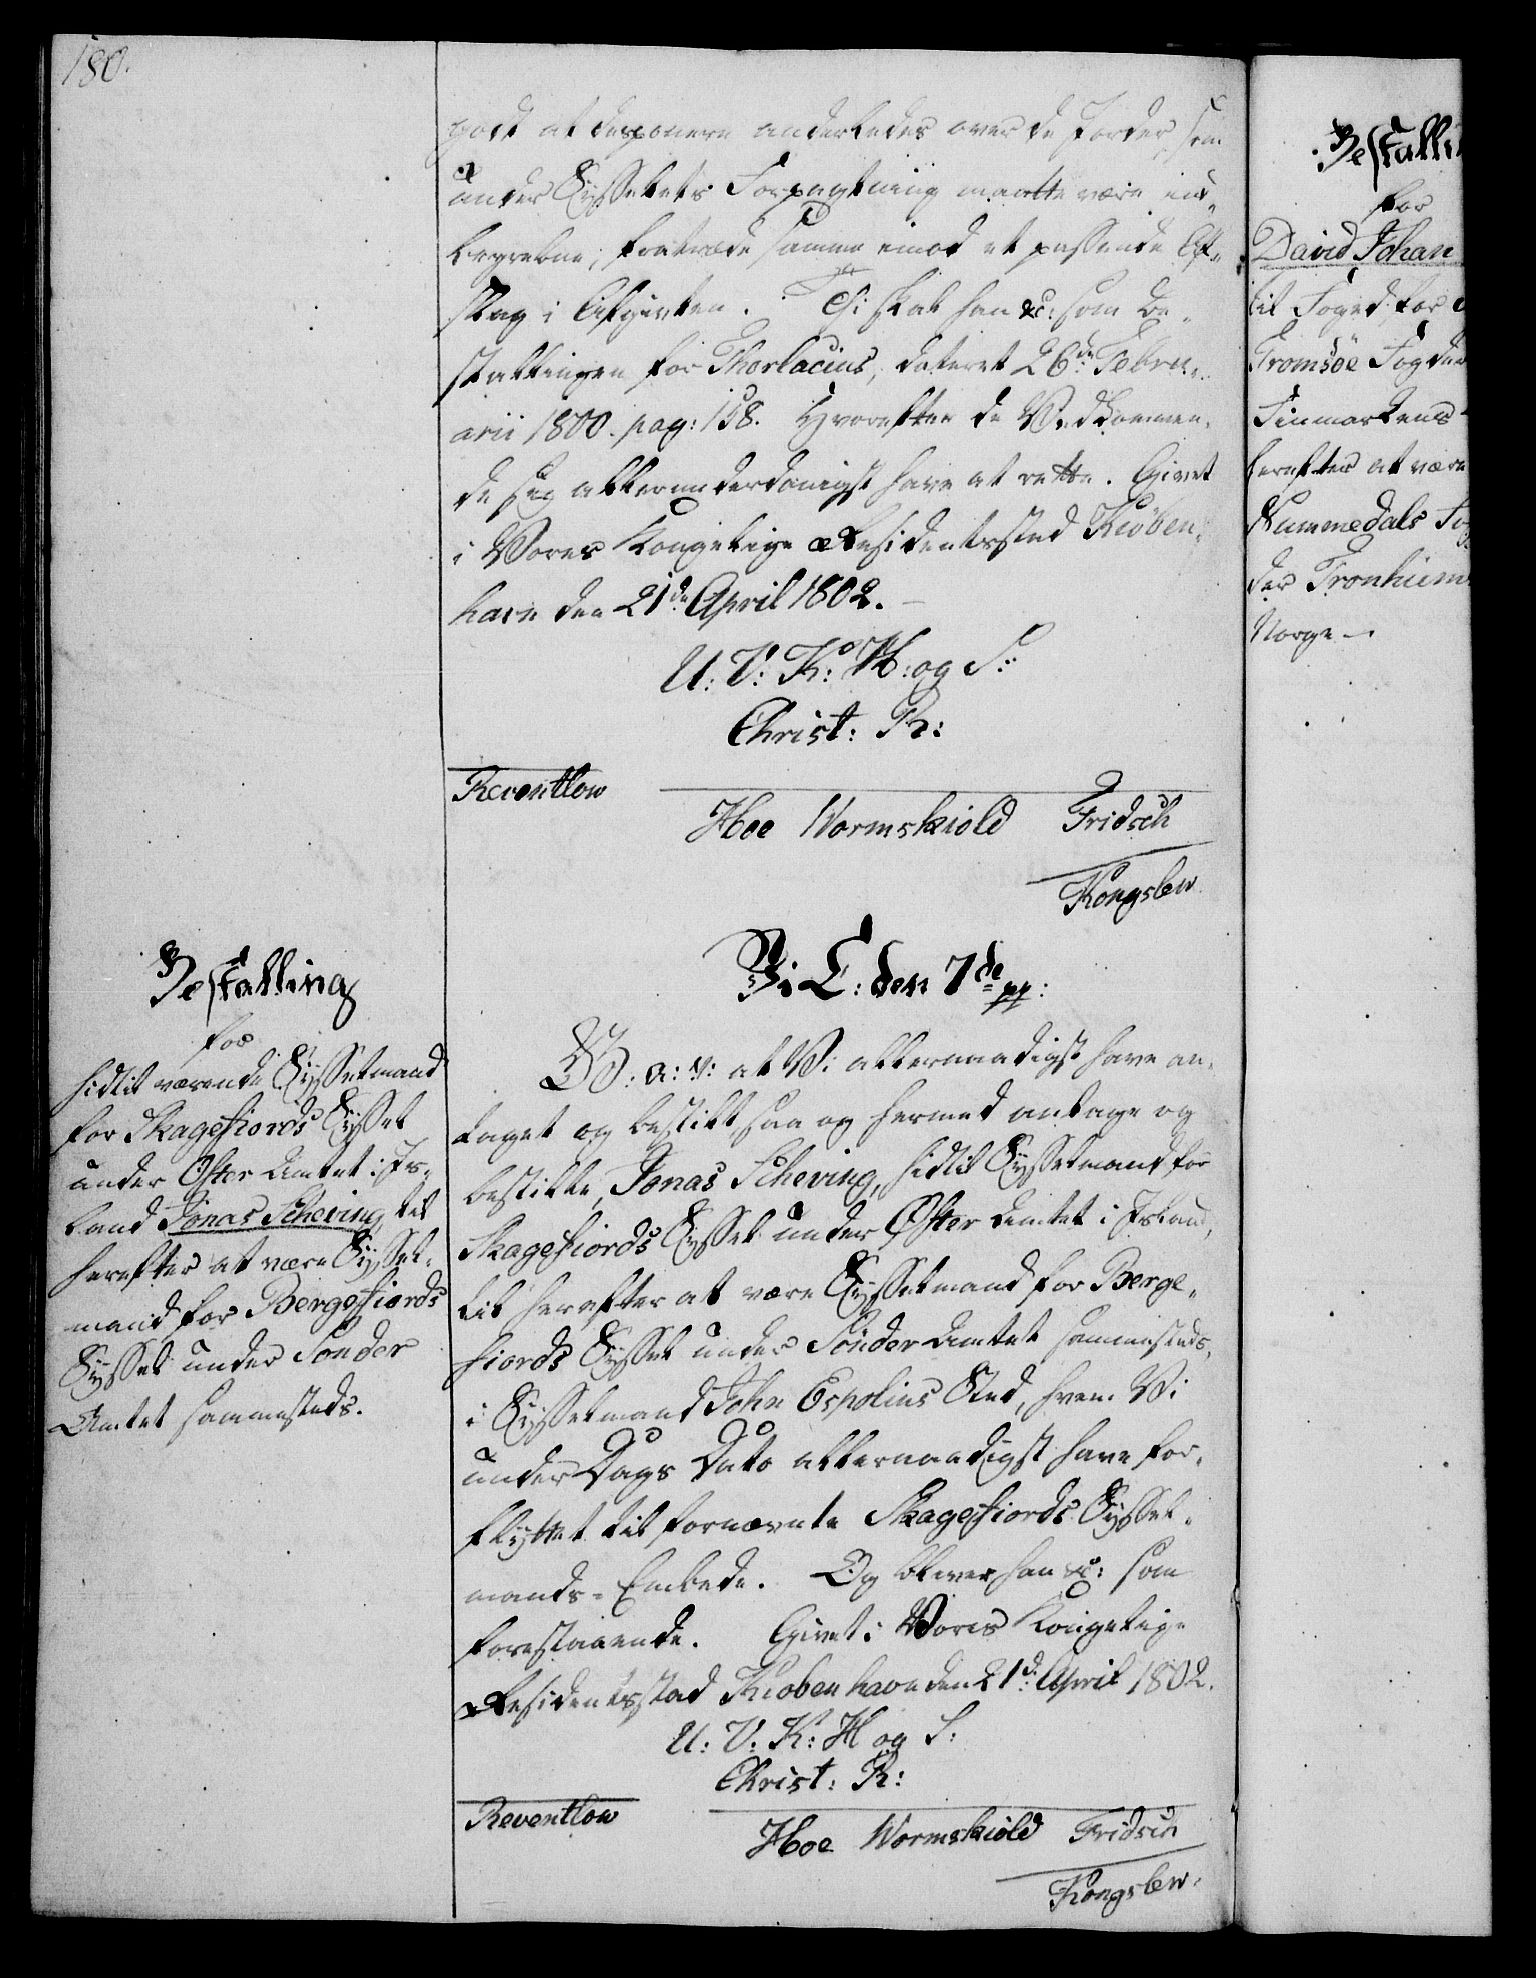 180.
godt at disponere anderledes over de Jorder, som
under Sysselets Forpagtning maatte være ind-
begrebne, fratræde samme imod et passende Af-
slag i Afgivten. Thi skal han &c: som Be-
stallingen for Thorlacius, dateret 26de Febru-
arii 1800. pag: 158. Hvorefter de Vedkommen-
de sig allerunderdanigst have at rette. Givet
i Vores Kongelige Residentsstad Kiöben-
havn den 21de April 1802.
U: V: K: H: og S:
Christ: R:
Reventlow
Hoe Wormskiold Fridsch
Kongslew
Bestalling
for
hidtil værende Sysselmand
for Skagefiords Syssel
under Øster Amtet i Is-
land Jonas Scheving, til
herefter at være Syssel-
mand for Bergefiords
Syssel under Sønder
Amtet sammesteds.
Vi C: den 7de pp:
G: A: V: at Vi allernaadigst have an-
taget og bestilt, saa og hermed antage og
bestille, Jonas Scheving, hidtil Sysselmand for
Skagefiords Syssel under Øster Amtet i Island,
til herefter at være Sysselmand for Berge-
fiords Syssel under Sønder Amtet sammesteds,
i Sysselmand John Espolins Sted, hvem Vi
under Dags Dato allernaadigst have for-
flyttet til fornævnte Skagefiords Syssel-
mands-Embede. Og bliver han &c: som
forestaaende. Givet i Vores Kongelige
Residentsstad Kiobenhavn den 21de April 1802.
U: V: K: H og S:
Christ: R:
Reventlow
Hoe Wormskiold Fridsch
Kongslew.
Bestalli
for
David Johan
til Foged for
Tromsöe Fogder
Finmarkens
herefter at være
Nummedals Fog
der Tronhiem
Norge